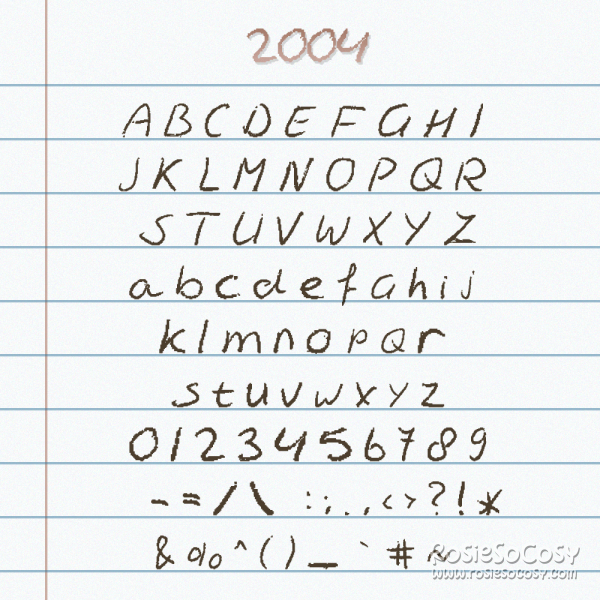 2004
A B C D E F G H I
J K L M N O P Q R
S T U V W X Y Z
a b c d e f G h i j
k l m n o p Q r
s t u v w x y z
0 1 2 3 4 5 6 7 8 9
- = / \ : ; . , < > ? ! *
& % ^ ( ) _ ` # ~
RosieSoCosy
www.rosiesocosy.com